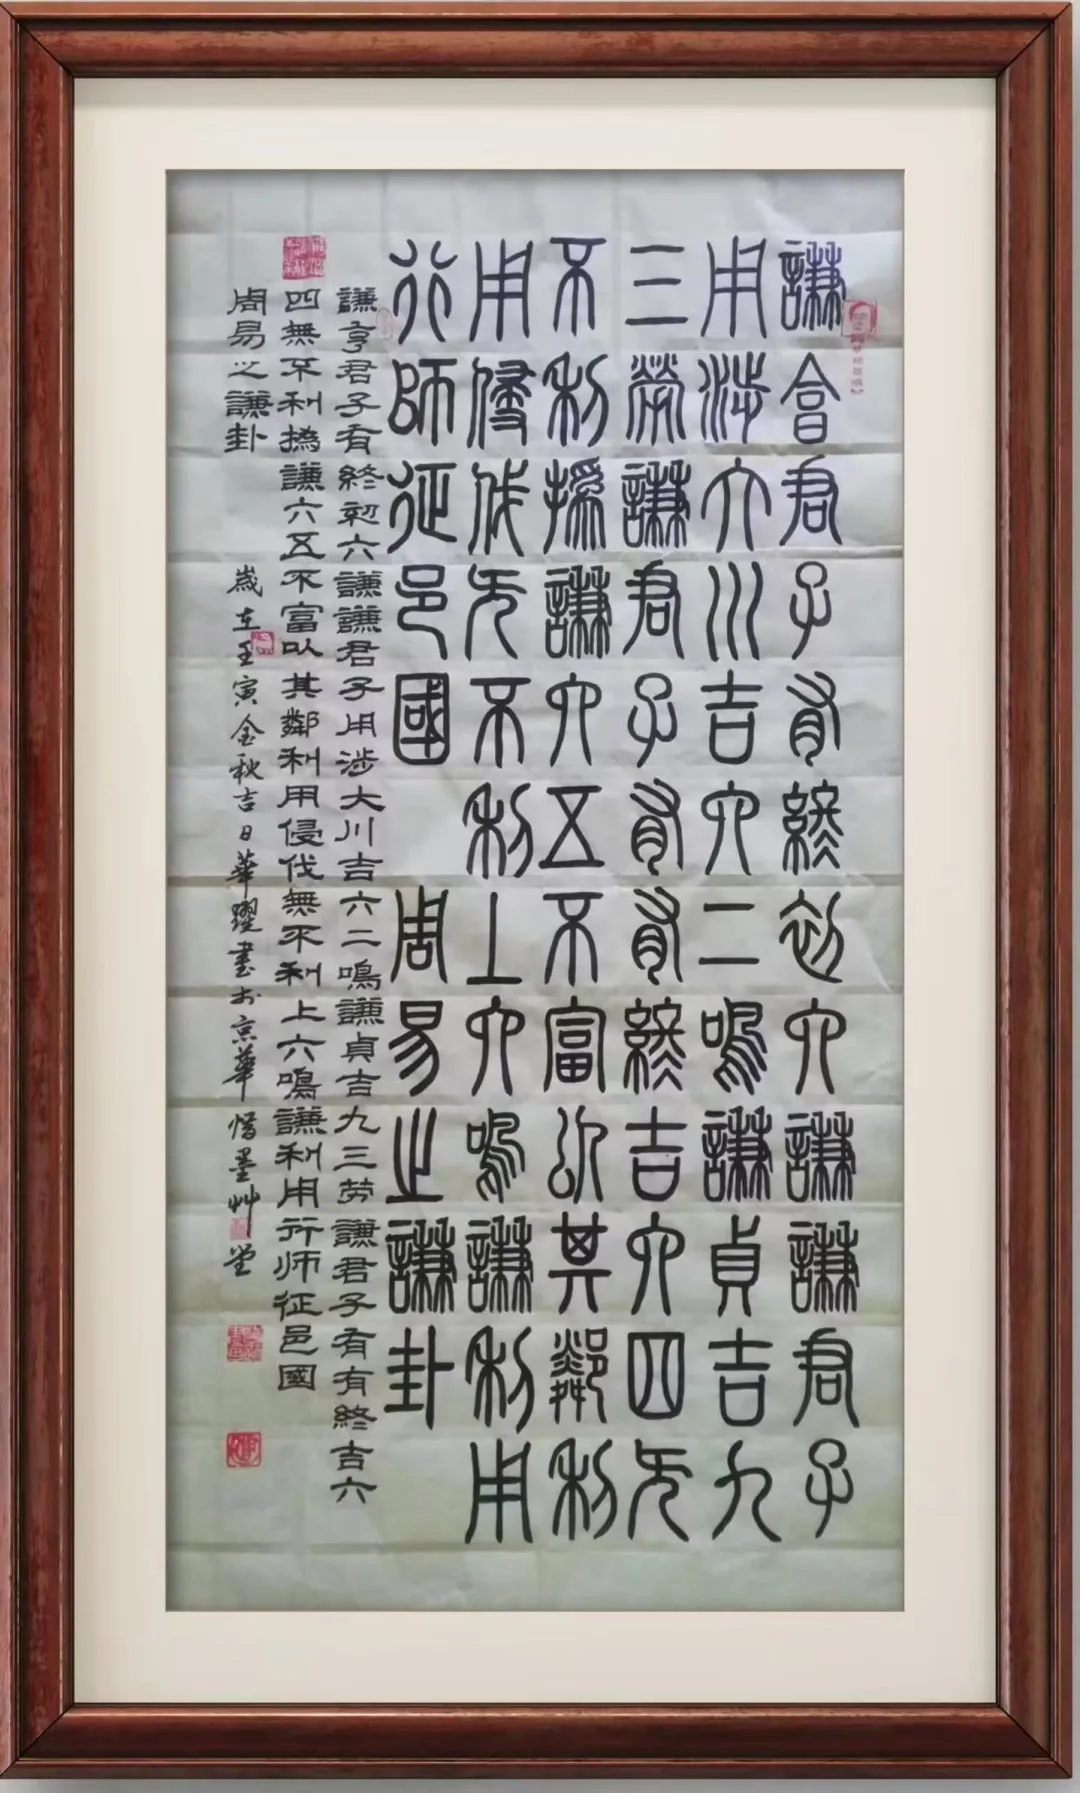 謙亯君子有終初六謙謙君子
用涉大川吉六二鳴謙貞吉九
三勞謙君子有有終吉六四无
不利撝謙六五不富以其鄰利
用侵伐无不利上六鳴謙利用
行師征邑國 周易之謙卦
謙亨君子有終初六謙謙君子用涉大川吉六二鳴謙貞吉九三劳謙君子有有終吉六
四無不利撝謙六五不富以其鄰利用侵伐無不利上六鳴謙利用行师征邑國
周易之謙卦 歲在壬寅金秋吉日華躍書於京華惜墨艸堂